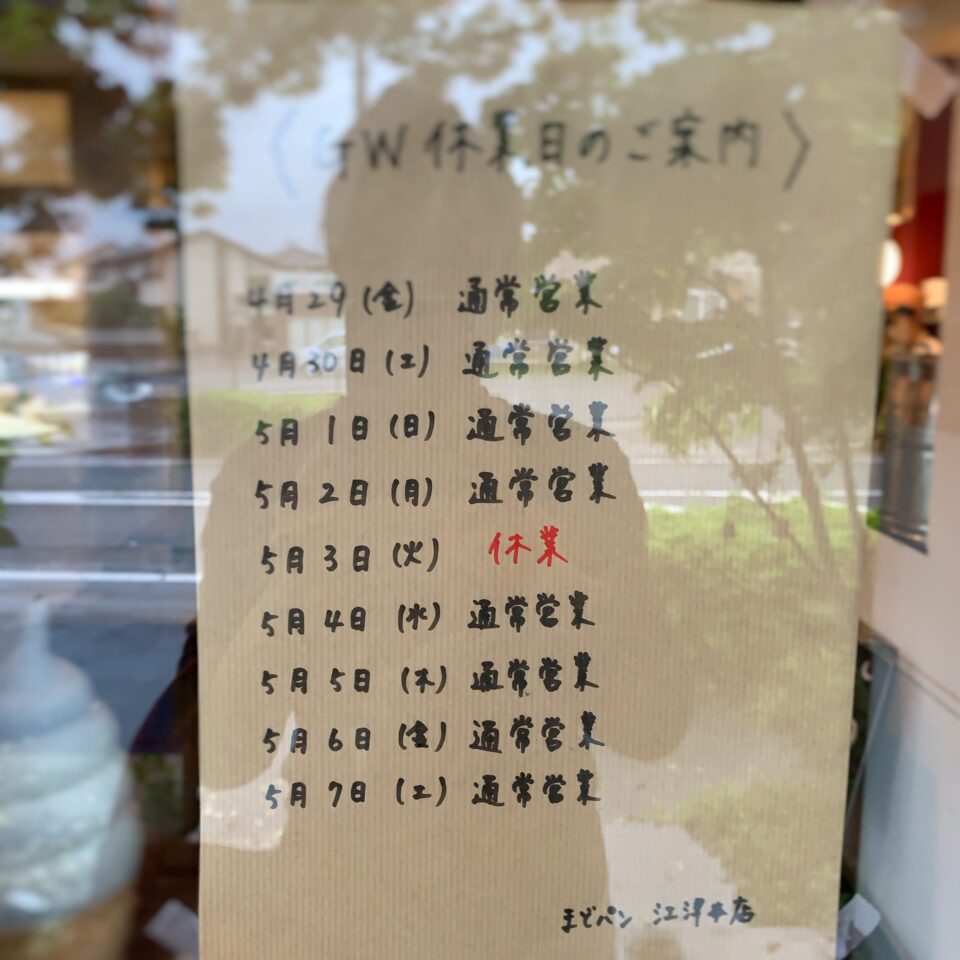 〈GW休業日のご案内〉
4月29(金) 通常営業
4月30日(土) 通常営業
5月1日(日) 通常営業
5月2日(月) 通常営業
5月3日(火) 休業
5月4日(水) 通常営業
5月5日(木) 通常営業
5月6日(金) 通常営業
5月7日(土) 通常営業
まどパン 江津本店